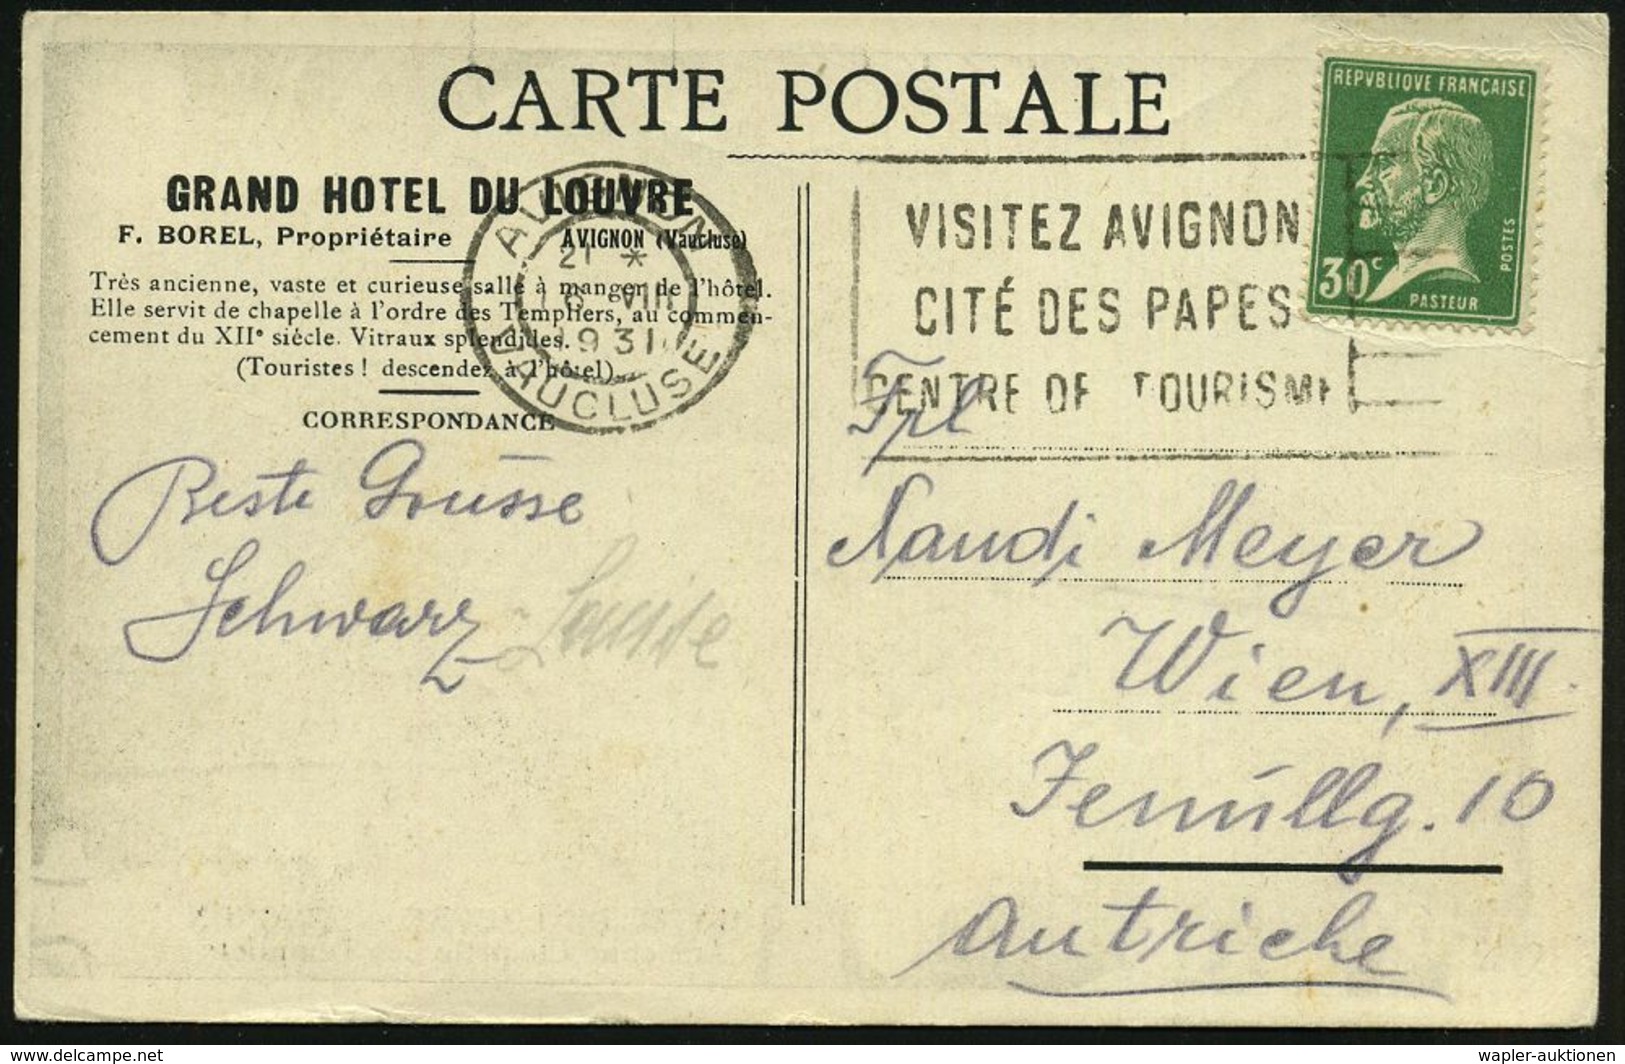 CARTE POSTALE
REPVBLIQVE FRANÇAISE
30c
POSTES
PASTEUR
GRAND HOTEL DU LOUVRE
F. BOREL, Propriétaire AVIGNON (Vaucluse)
Très ancienne, vaste et curieuse salle à manger de l'hôtel.
Elle servit de chapelle à l'ordre des Templiers, au commen-
cement du XIIe siécle. Vitraux splendides.
(Touristes! descendez à l'hôtel).
CORRESPONDANCE
AVIGNON
21 *
VIII
1931
VAUCLUSE
VISITEZ AVIGNON
CITÉ DES PAPES
CENTRE DE TOURISME
Beste Grüsse
Schwarz - Louise
Frl
Nandi Meyer
Wien, XIII
10
Autriche
www.delcampe.net
wapler-auktionen